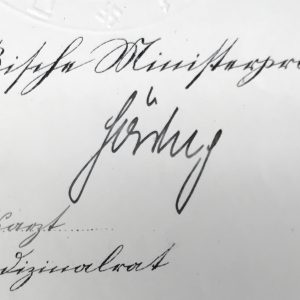 ßische Ministerprä
Göring
arzt........
dizinalrat